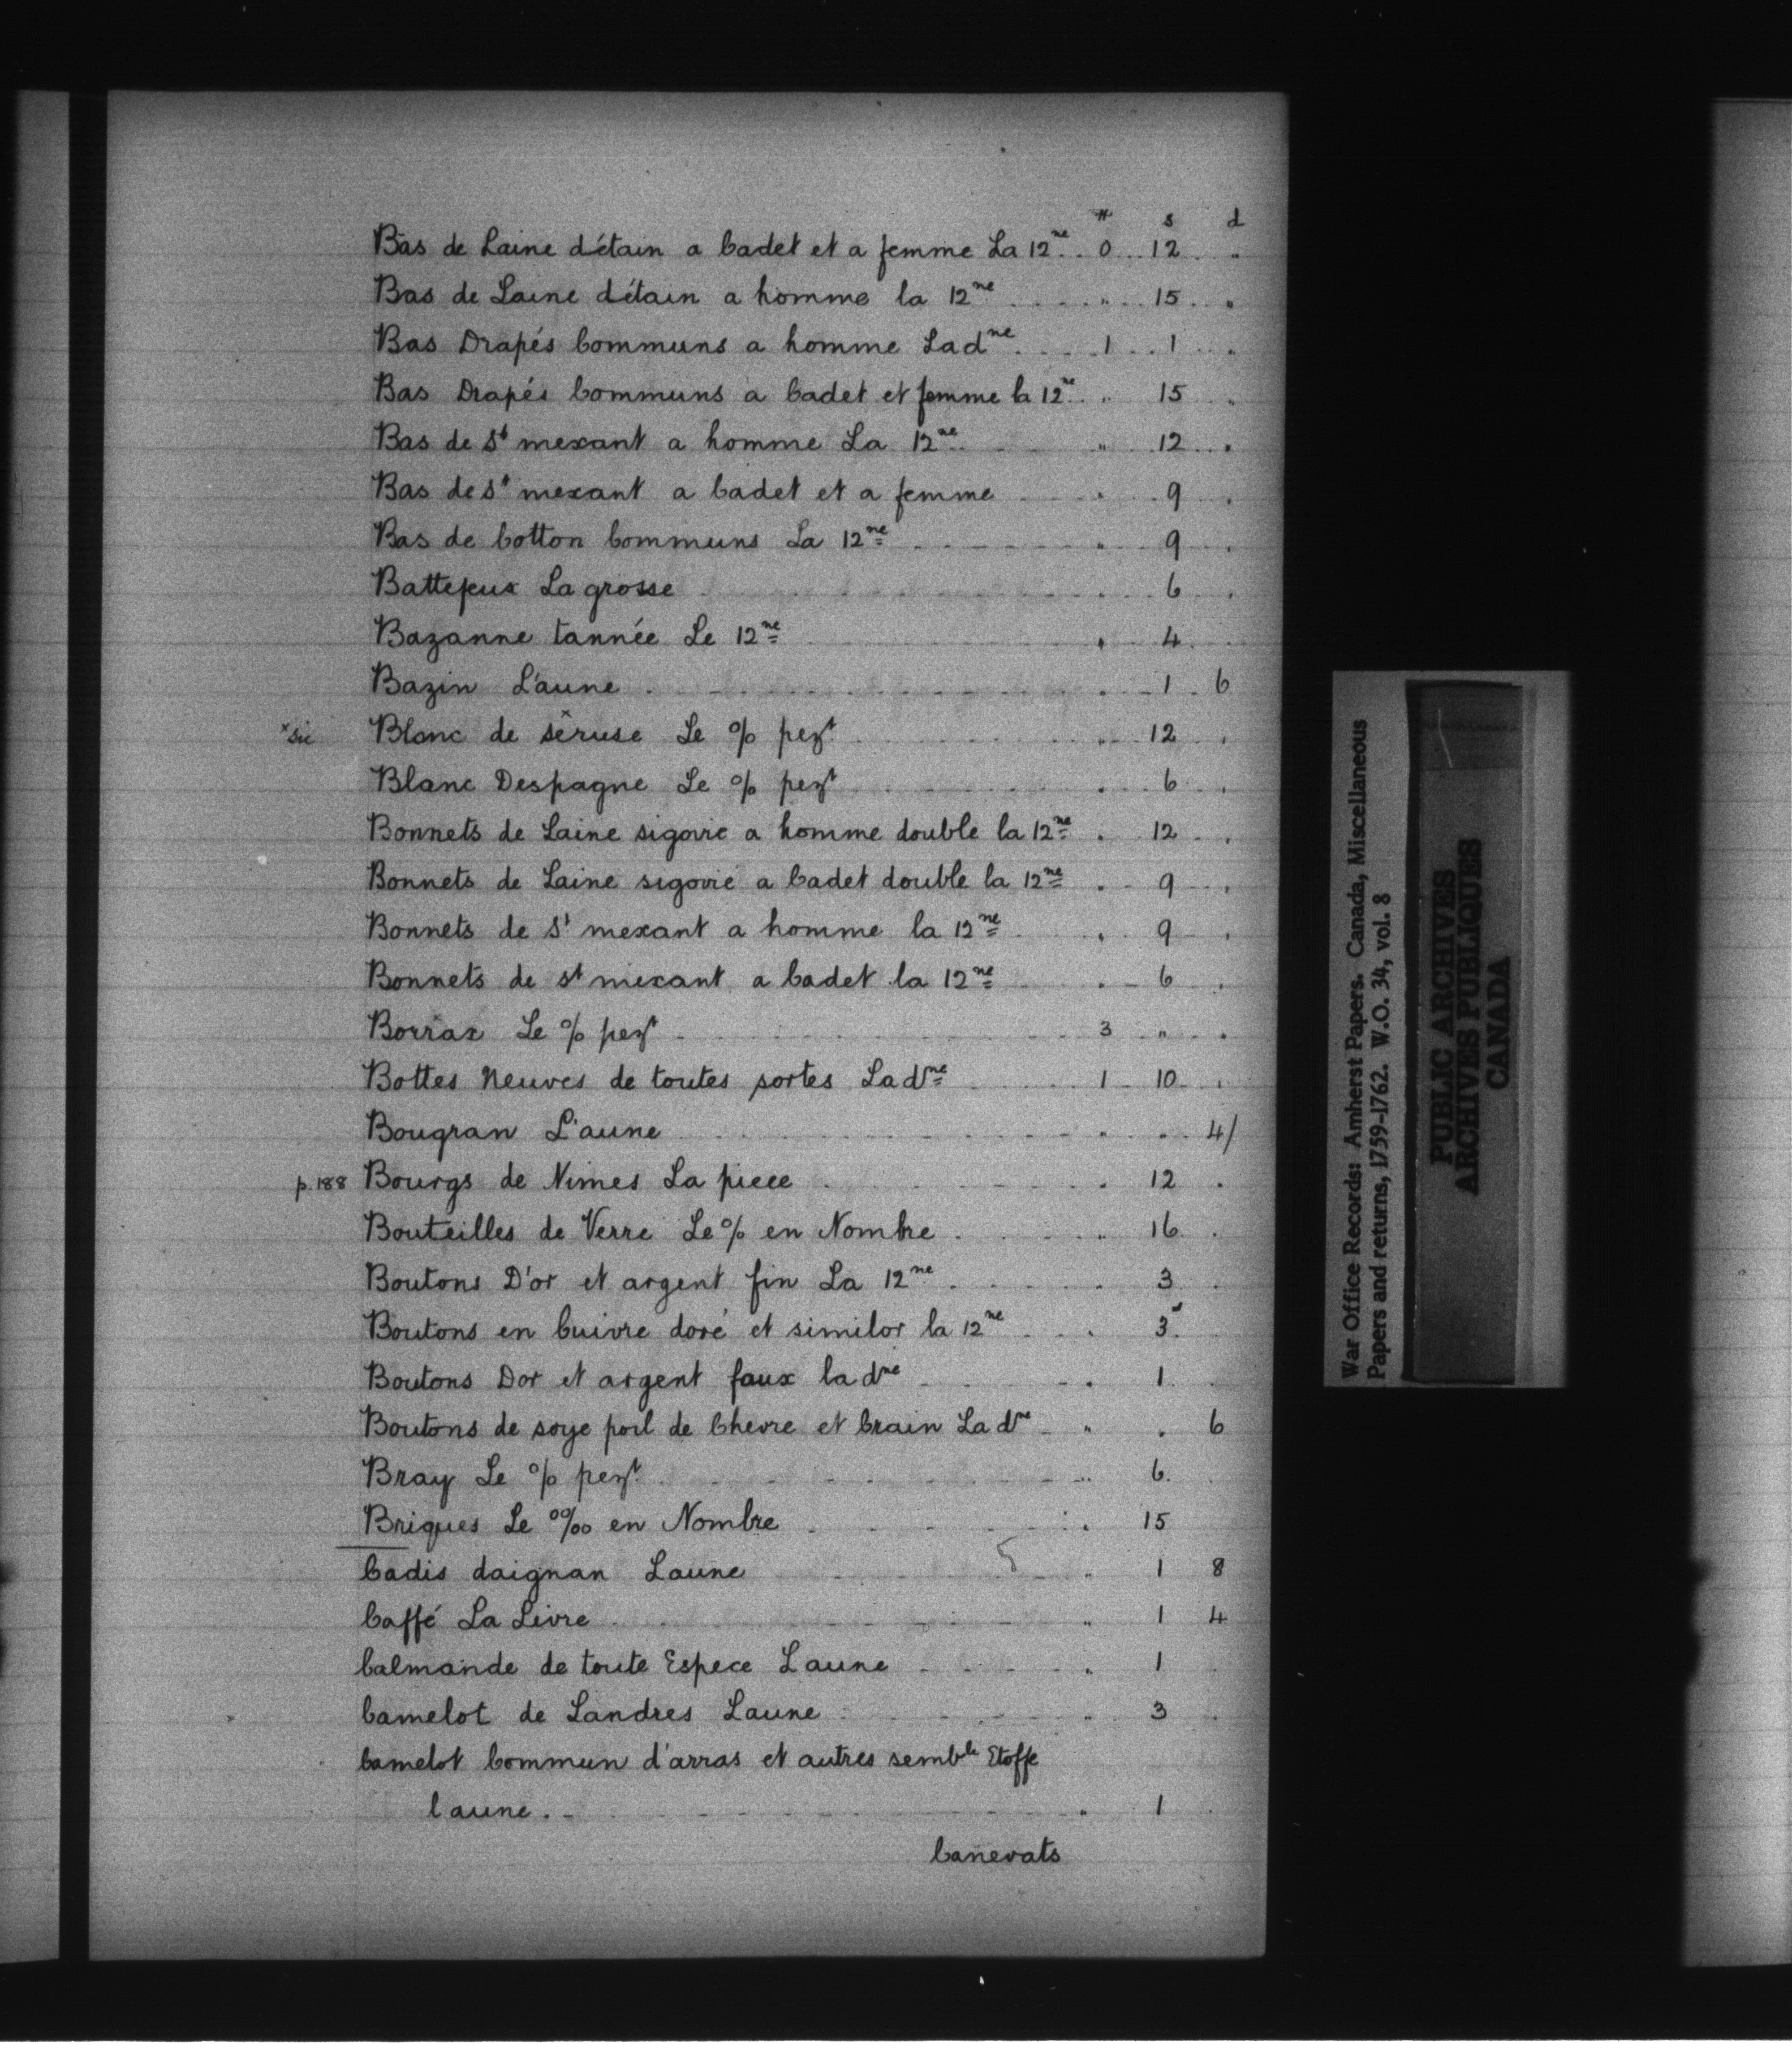 # s d
Bas de Laine détain a Cadet et a femme La 12ne .. 0 .. 12 . "
Bas de Laine détain a homme la 12ne .... " .. 15 . "
Bas Drapés Communs a homme La dne .... 1 .. 1 .. "
Bas Drapés Communs a Cadet et femme la 12ne .. " 15 "
Bas de St mexant a homme La 12ne .. " .. 12 .. "
Bas de St mexant a Cadet et a femme .... " .. 9 .. "
Bas de Cotton Communs La 12ne .... " .. 9 .. "
Battefeux La grosse .... 6 "
Bazanne tannée Le 12ne .... " .. 4
Bazin L'aune .... 1 . 6
x sic Blanc de sêruse Le % pezt .... " .. 12 "
Blanc Despagne Le % pezt .... " .. 6 "
Bonnets de Laine sigovie a homme double la 12ne . 12 . "
Bonnets de Laine sigovie a Cadet double la 12ne . 9 . "
Bonnets de St mexant a homme la 12ne .. " 9 "
Bonnets de st mexant a Cadet la 12ne .. " 6 "
Borrax Le % pezt .... 3 " "
Bottes Neuves de toutes sortes La dne .... 1 .. 10 . "
Bougran L'aune .... " .. " .. 4/
p. 188 Bourgs de Nimes La piece .... " 12 "
Bouteilles de Verre Le % en Nombre .... " 16 "
Boutons D'or et argent fin La 12ne .... " 3 "
Boutons en Cuivre doré et similor la 12ne .... " 3
Boutons Dor et argent faux la dne .... " 1
Boutons de soye poil de Chevre et Crain La dne .. " " 6
Bray Le % pezt .... " 6
Briques Le ‰ en Nombre .... " 15
Cadis daignan Laune .... " 1 8
Caffé La Livre .... " 1 4
Calmande de toute Espece Laune .... " 1
Camelot de Landres Laune .... " 3
Camelot Commun d'arras et autres semble Etoffe
l aune .... " 1
Canevats
War Office Records: Amherst Papers. Canada, Miscellaneous
Papers and returns, 1759-1762. W.O. 34, vol. 8
PUBLIC ARCHIVES
ARCHIVES PUBLIQUES
CANADA